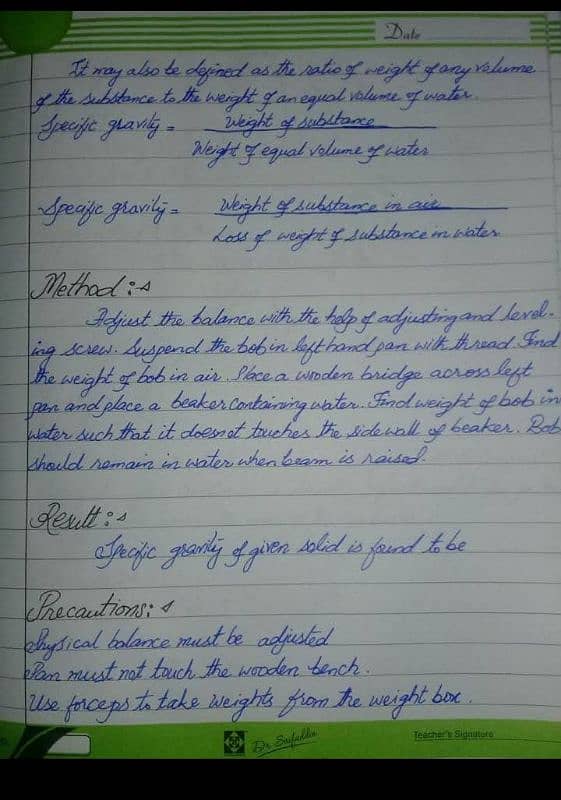 Date
It may also be defined as the ratio of weight of any volume
of the substance to the weight of an equal volume of water.
Specific gravity = Weight of substance
Weight of equal volume of water
Specific gravity = Weight of substance in air
Loss of weight of substance in water
Method :s
Adjust the balance with the help of adjusting and level-
ing screw. Suspend the bob in left hand pan with thread. Find
the weight of bob in air. Place a wooden bridge across left
pan and place a beaker containing water. Find weight of bob in
water such that it doesnot touches the side wall of beaker. Bob
should remain in water when beam is raised.
Result :s
Specific gravity of given solid is found to be
Precautions: s
Physical balance must be adjusted
Pan must not touch the wooden bench.
Use forceps to take weights from the weight box.
Dr Saifuddin
Teacher's Signature